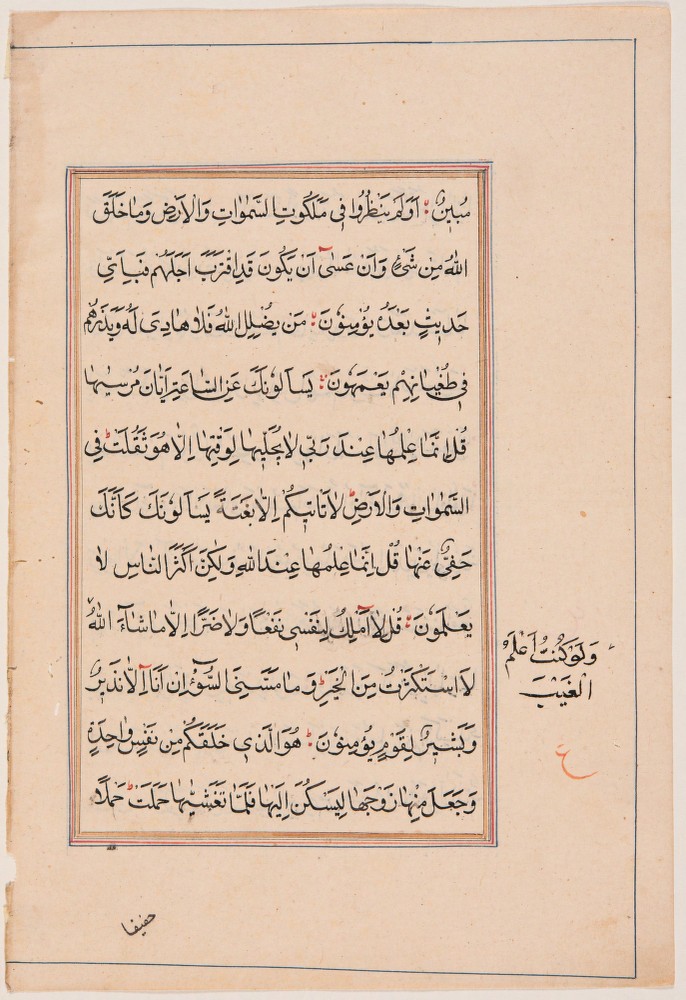 مُبِينٌ اَوَلَمْ يَنْظُرُوا فِي مَلَكُوتِ السَّمٰوَاتِ وَالْاَرْضِ وَمَا خَلَقَ
اللهُ مِنْ شَيْءٍ وَاَنْ عَسٰى اَنْ يَكُونَ قَدِ اقْتَرَبَ اَجَلُهُمْ فَبِاَيِّ
حَدِيثٍ بَعْدَهُ يُؤْمِنُونَ مَنْ يُضْلِلِ اللهُ فَلَا هَادِيَ لَهُ وَيَذَرُهُمْ
فِي طُغْيَانِهِمْ يَعْمَهُونَ يَسْاَلُونَكَ عَنِ السَّاعَةِ اَيَّانَ مُرْسٰيهَا
قُلْ اِنَّمَا عِلْمُهَا عِنْدَ رَبِّي لَا يُجَلِّيهَا لِوَقْتِهَا اِلَّا هُوَ ثَقُلَتْ فِي
السَّمٰوَاتِ وَالْاَرْضِ لَا تَاْتِيكُمْ اِلَّا بَغْتَةً يَسْاَلُونَكَ كَاَنَّكَ
حَفِيٌّ عَنْهَا قُلْ اِنَّمَا عِلْمُهَا عِنْدَ اللهِ وَلٰكِنَّ اَكْثَرَ النَّاسِ لَا
يَعْلَمُونَ قُلْ لَا اَمْلِكُ لِنَفْسِي نَفْعًا وَلَا ضَرًّا اِلَّا مَا شَاءَ اللهُ
لَاسْتَكْثَرْتُ مِنَ الْخَيْرِ وَمَا مَسَّنِيَ السُّوءُ اِنْ اَنَا اِلَّا نَذِيرٌ
وَبَشِيرٌ لِقَوْمٍ يُؤْمِنُونَ هُوَ الَّذِي خَلَقَكُمْ مِنْ نَفْسٍ وَاحِدَةٍ
وَجَعَلَ مِنْهَا زَوْجَهَا لِيَسْكُنَ اِلَيْهَا فَلَمَّا تَغَشّٰيهَا حَمَلَتْ حَمْلًا
وَلَوْ كُنْتُ اَعْلَمُ
الْغَيْبَ
ع
خفيفا